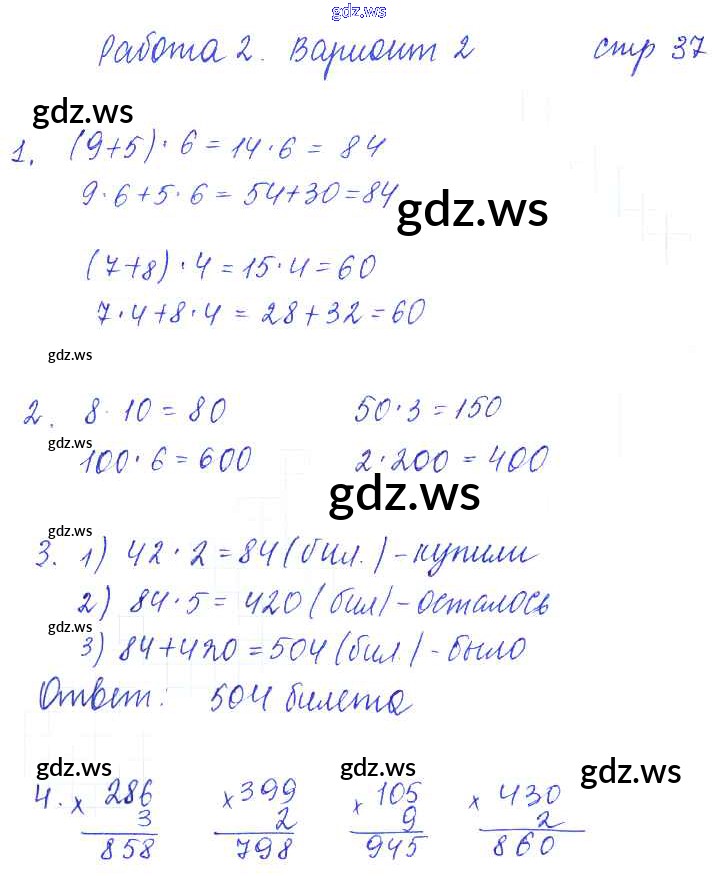 gdz.ws
Работа 2. Вариант 2 стр 37
gdz.ws
1. (9+5)·6=14·6=84
9·6+5·6=54+30=84
gdz.ws
(7+8)·4=15·4=60
7·4+8·4=28+32=60
gdz.ws
2. 8·10=80 50·3=150
gdz.ws
100·6=600 2·200=400
gdz.ws
gdz.ws
3. 1) 42·2=84(бил.)-купили
2) 84·5=420(бил)-осталось
gdz.ws
3) 84+420=504(бил.)-было
Ответ: 504 билета
gdz.ws gdz.ws gdz.ws gdz.ws
4. ×286 ×399 ×105 ×430
3 2 9 2
858 798 945 860